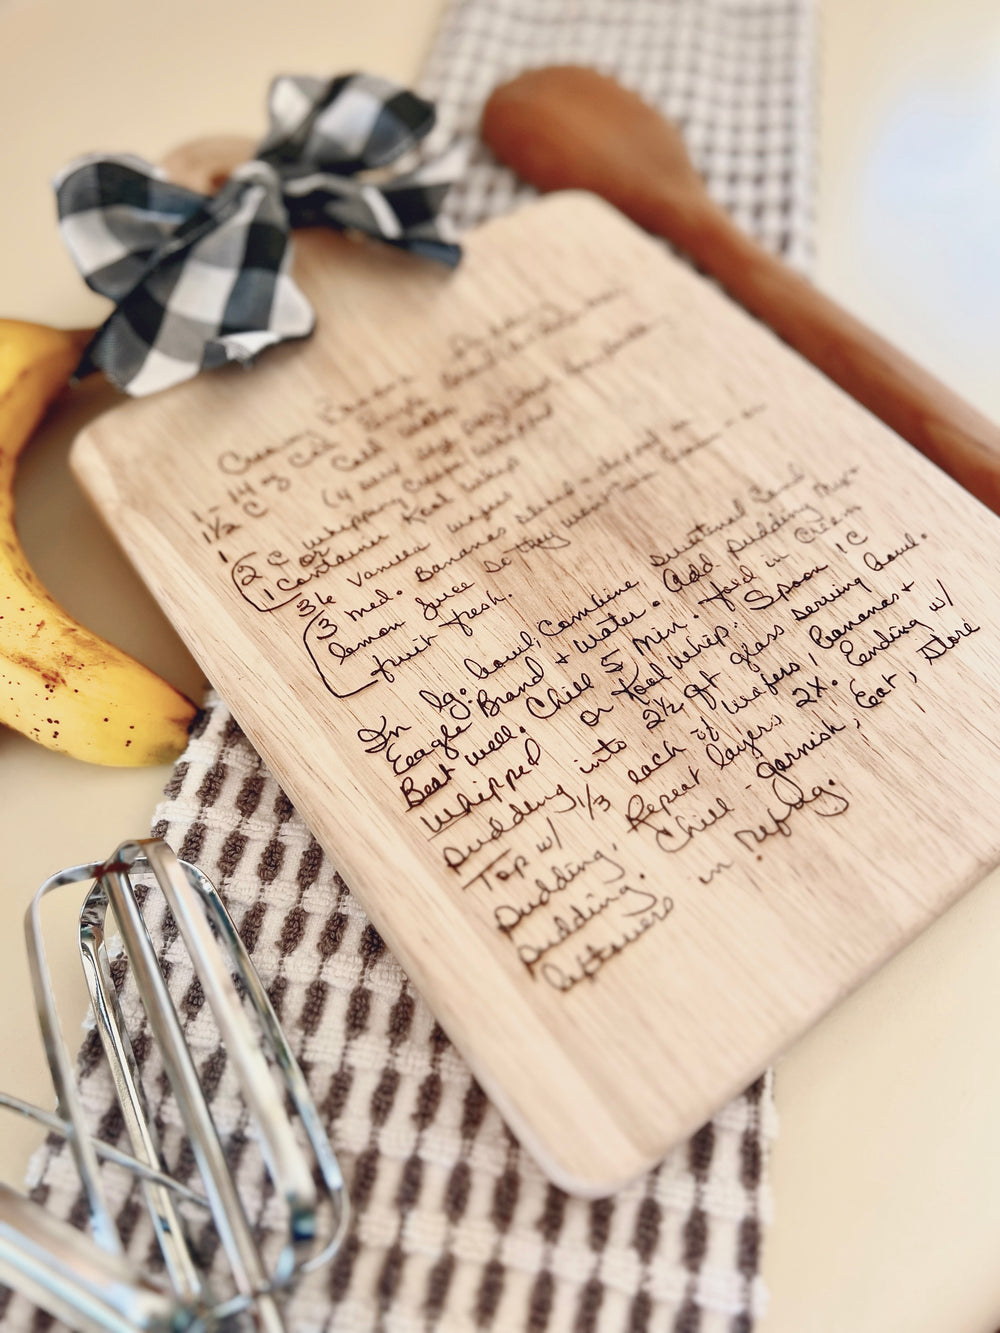 Creamy Banana Pudding
1- 14 oz can Eagle Brand
1½ C cold water
1 (4 serv
2 C whipping cream whipped
or
1 container Kool whip
36 Vanilla wafers
3 med. Bananas sliced + dipped in
lemon juice so they
fruit fresh.
In lg. bowl, combine sweetened cond
Eeagle Brand + water. Add pudding mix-
Beat well. Chill 5 min. fold in cream
Whipped or Kool Whip. Spoon 1C
pudding into 2½ qt glass serving bowl.
Top w/ 1/3 each of wafers, bananas +
pudding. Repeat layers 2X. Ending w/
pudding. Chill - garnish, Eat, Store
leftovers in refrig.